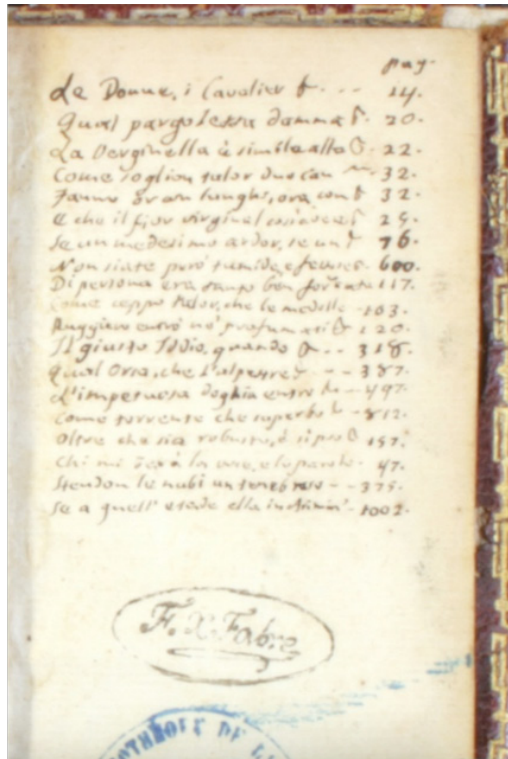 pag.
Le Donne, i Cavalier &. - - - 14.
Qual pargoletta damma &. 20.
La Verginella è simile alla &. 22.
Come soglion talor due can - 32.
Fanno or con lunghi, ora con &. 32.
E che il fior virginal 25.
Se un medesimo ardor, se un &. 76.
Non siate però tumide, e 600.
Di persona era tanto ben formata 117.
Come ceppo talor, che le medolle - 103.
Ruggiero entrò ne' profumati &. 120.
Il giusto Iddio, quando &. - - 318.
Qual Orsa, che l'alpestre &. - - 387.
L'impetuosa doglia entro &. - 497.
Come torrente che superbo &. - 812.
Oltre che sia robusto, è sì pro &. 157.
Chi mi darà la voce, e le parole - 47.
Stendon le nubi un tenebroso - - 375.
Se a quell' etade ella - 1002.
F. X. Fabre
OTHÈQUE DE LA